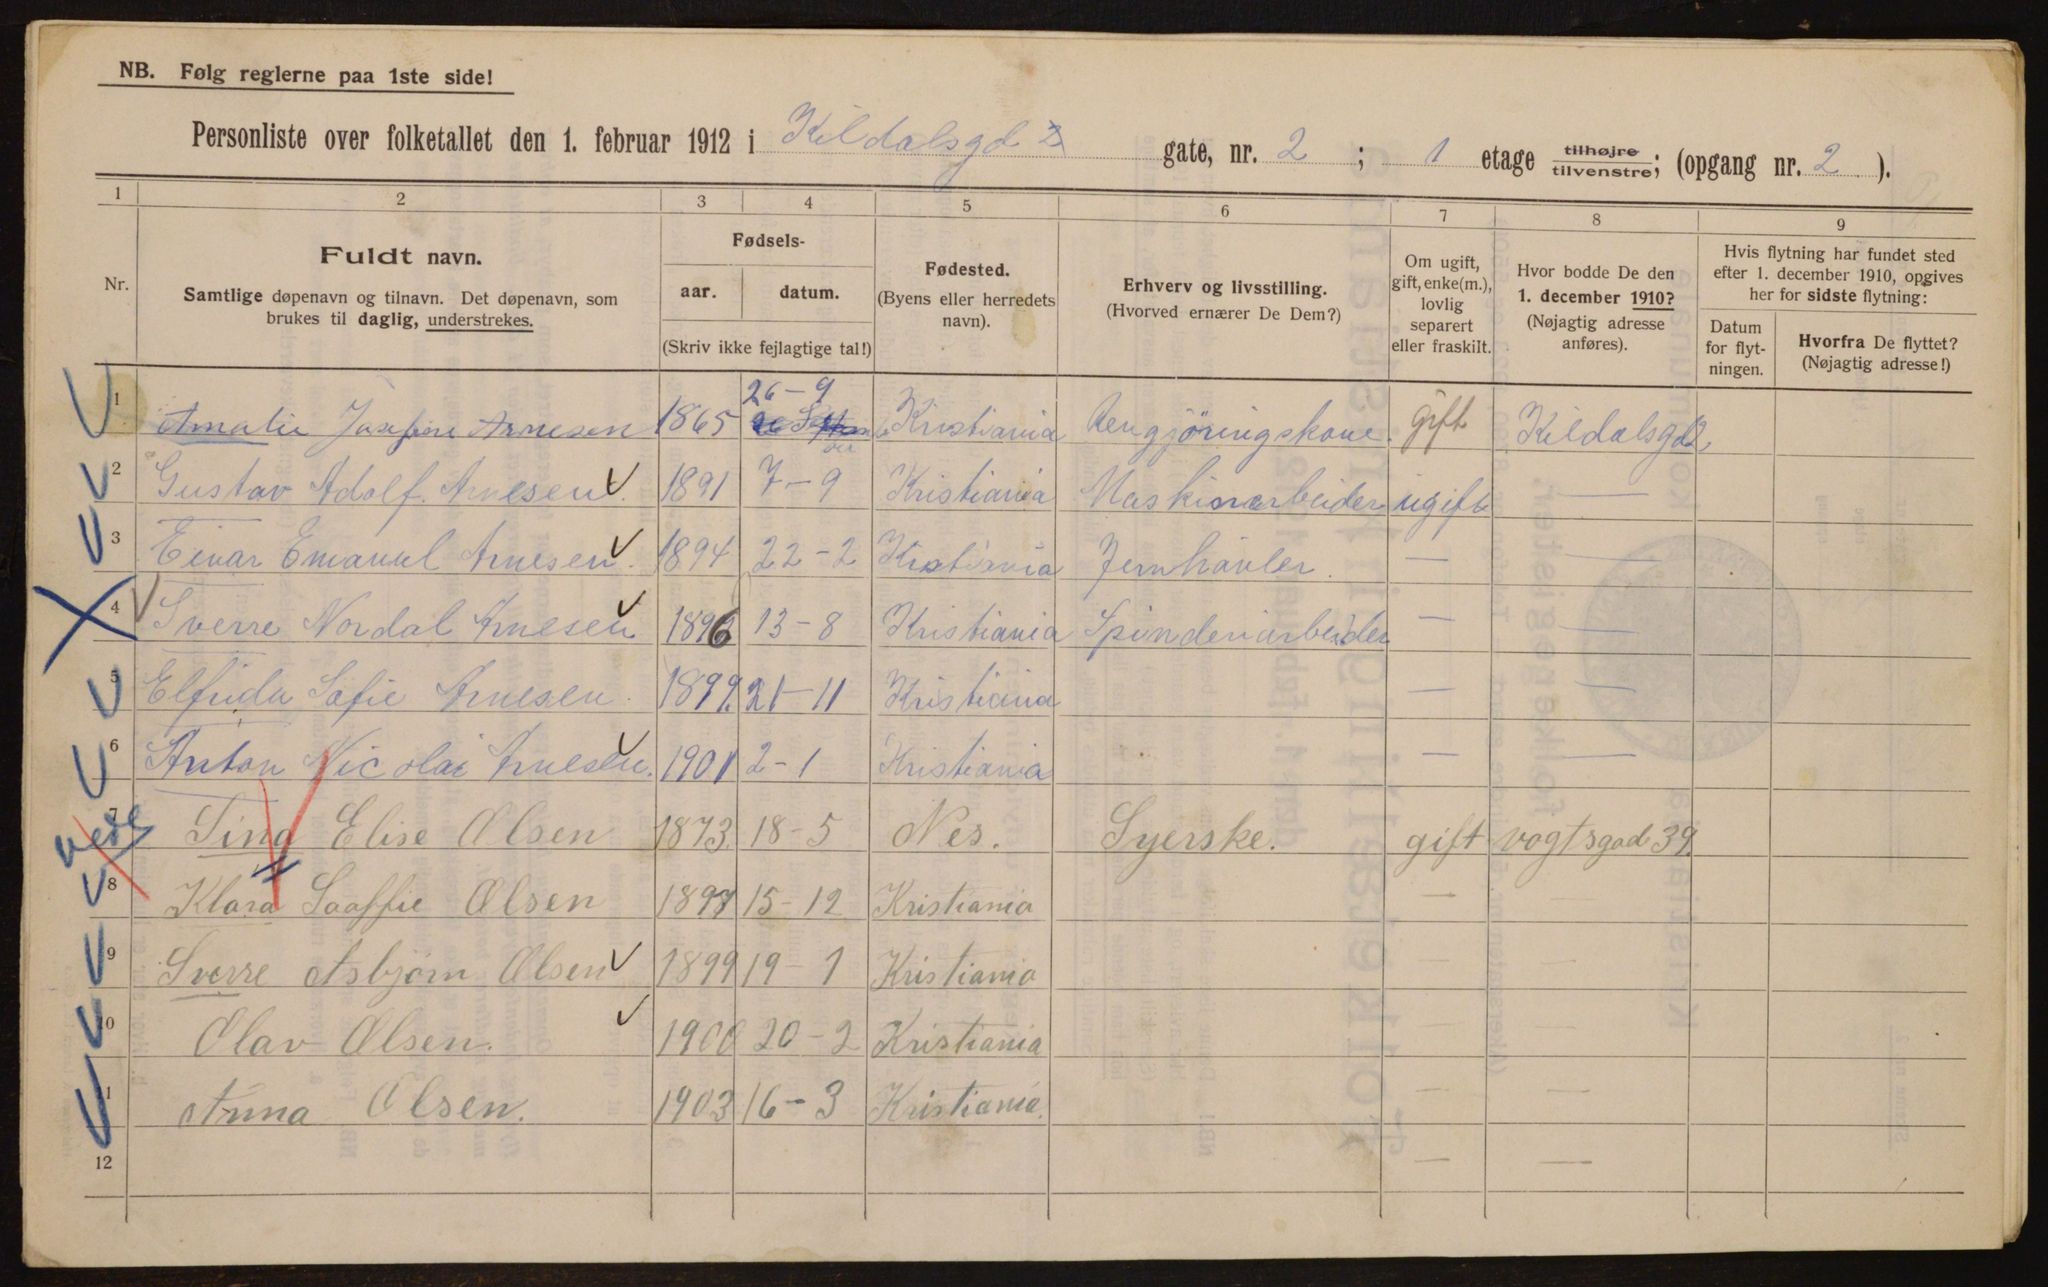 NB. Følg reglerne paa 1ste side!
Personliste over folketallet den 1. februar 1912 i Kildalsgd 2 gate, nr. 2 ; 1 etage tilhøjre tilvenstre; (opgang nr. 2 ).
1 2 3 4 5 6 7 8 9
Nr.
Fuldt navn.
Samtlige døpenavn og tilnavn. Det døpenavn, som
brukes til daglig, understrekes.
Fødsels-
aar. datum.
(Skriv ikke fejlagtige tal!)
Fødested.
(Byens eller herredets
navn).
Erhverv og livsstilling.
(Hvorved ernærer De Dem?)
Om ugift,
gift, enke(m.),
lovlig
separert
eller fraskilt.
Hvor bodde De den
1. december 1910?
(Nøjagtig adresse
anføres).
Hvis flytning har fundet sted
efter 1. december 1910, opgives
her for sidste flytning:
Datum
for flyt-
ningen.
Hvorfra De flyttet?
(Nøjagtig adresse!)
1 Amalie Josefine Arnesen 1865 26-9 Kristiania Rengjöringskone gift Kildalsgd 2
2 Gustav Adolf Arnesen 1891 7-9 Kristiania Maskinarbeider ugift —
3 Einar Emanuel Arnesen 1894 22-2 Kristiania Jernhövler — —
4 Sverre Nordal Arnesen 1896 13-8 Kristiania Spinderiarbeider — —
5 Elfrida Sofie Arnesen 1899 21-11 Kristiania — —
6 Anton Nicolai Arnesen 1901 2-1 Kristiania — —
7 Sina Elise Olsen 1873 18-5 Nes. Syerske. gift vogtsgad 39
8 Klara Sooffie Olsen 1897 15-12 Kristiania — —
9 Sverre Asbjørn Olsen 1899 19-1 Kristiania — —
10 Olav Olsen. 1900 20-2 Kristiania — —
11 Anna Olsen. 1903 16-3 Kristiania. — —
12 — —